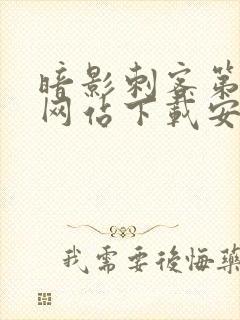 暗影刺客第
网站下载安
我需要後悔藥